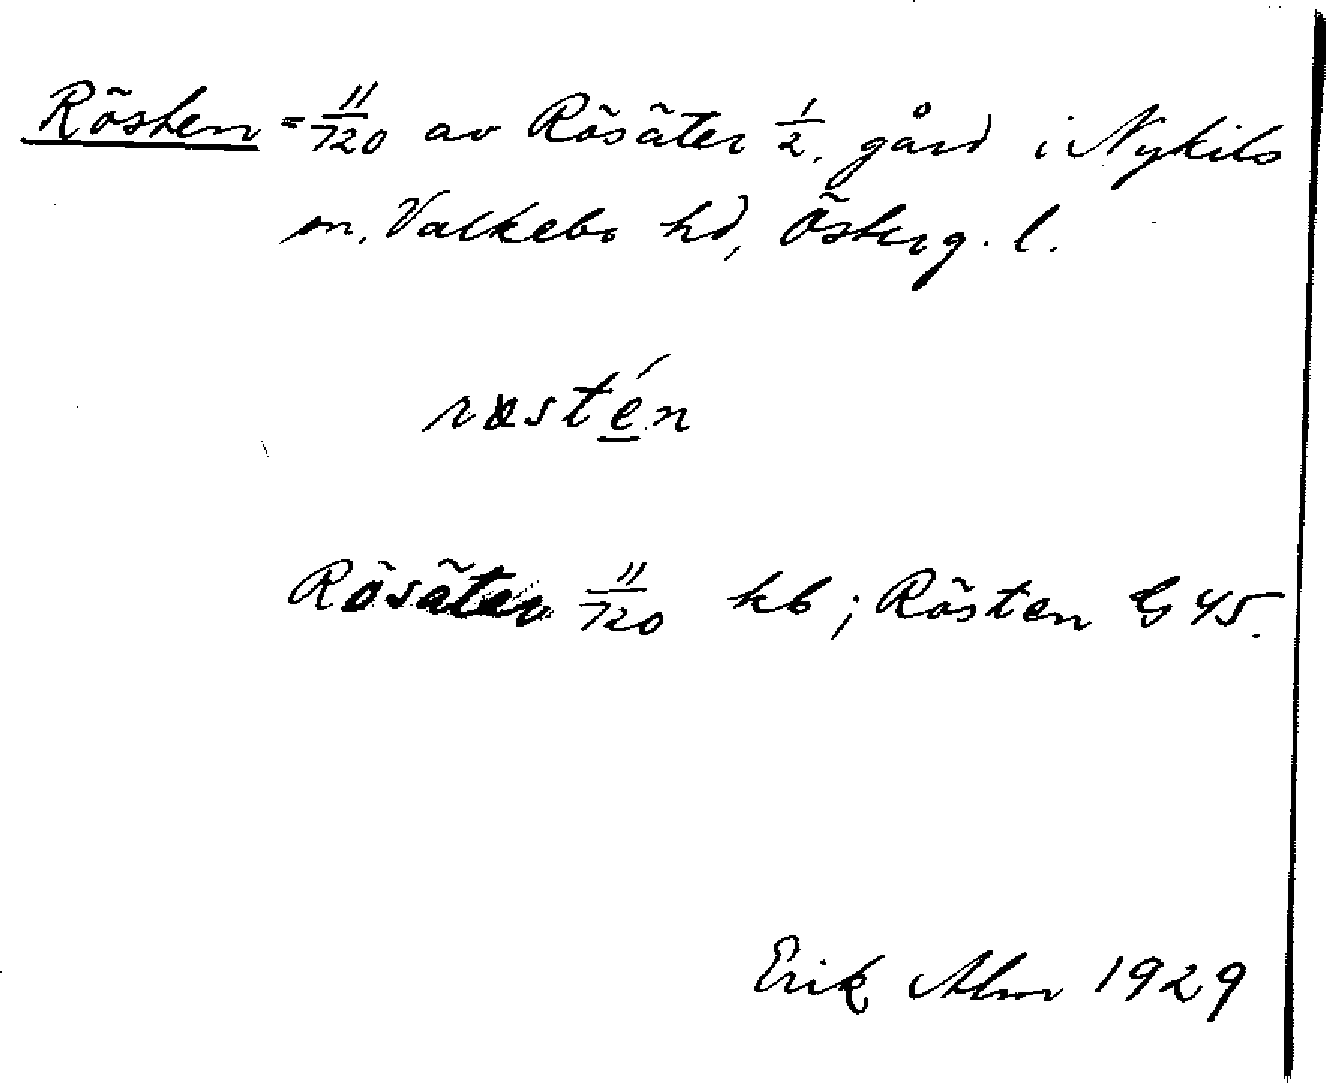 Rösten = 11/720 av Rösäter 1/2. gård i Nykils
sn. Valkebo hd, Österg. l.
røstén
Rösäter 11/720 hb; Rösten G 45.
Erik Alm 1929